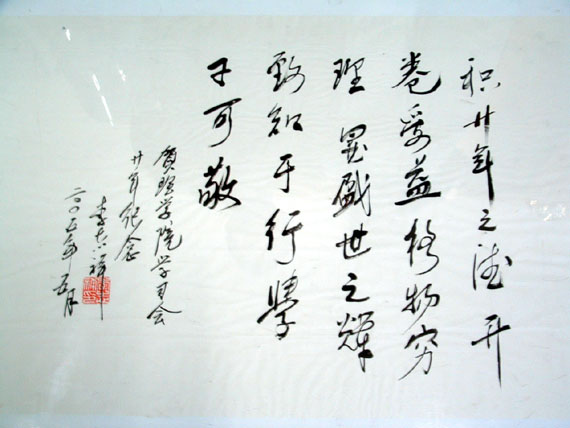 积廿年之德开
卷受益格物穷
理冀盛世之辉
致知于行学
子可敬
贺理学院学习会
廿年纪念
李
二〇〇五年五月